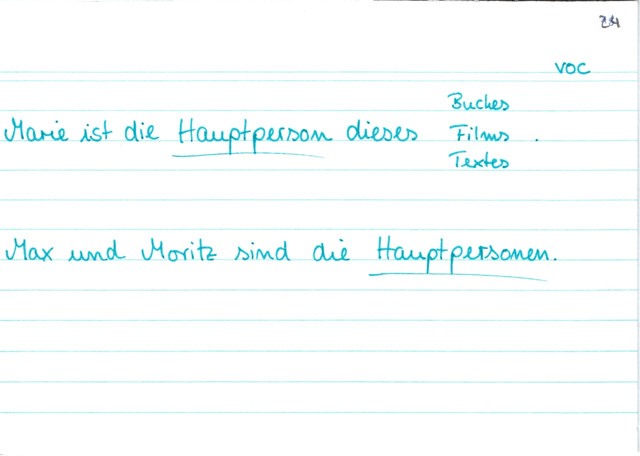 24
VOC
Buches
Marie ist die Hauptperson dieses Films.
Textes
Max und Moritz sind die Hauptpersonen.